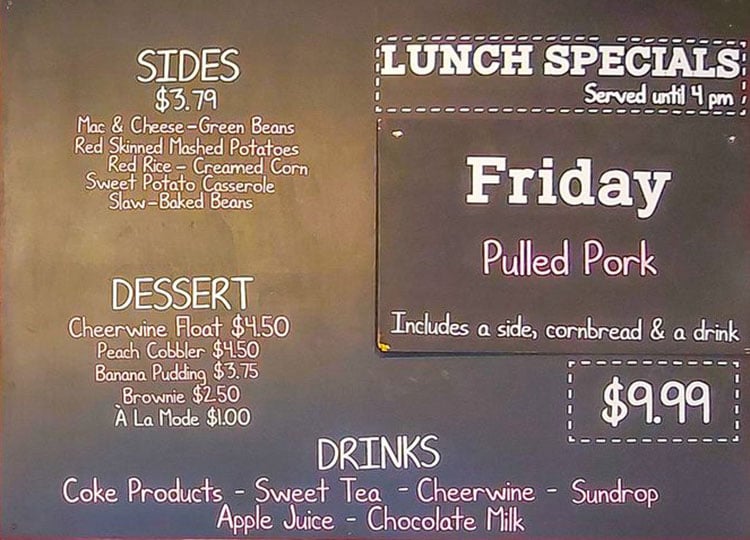 SIDES
$3.79
Mac & Cheese-Green Beans
Red Skinned Mashed Potatoes
Red Rice - Creamed Corn
Sweet Potato Casserole
Slaw-Baked Beans
DESSERT
Cheerwine Float $4.50
Peach Cobbler $4.50
Banana Pudding $3.75
Brownie $2.50
À La Mode $1.00
LUNCH SPECIALS
Served until 4 pm
Friday
Pulled Pork
Includes a side, cornbread & a drink
$9.99
DRINKS
Coke Products - Sweet Tea - Cheerwine - Sundrop
Apple Juice - Chocolate Milk